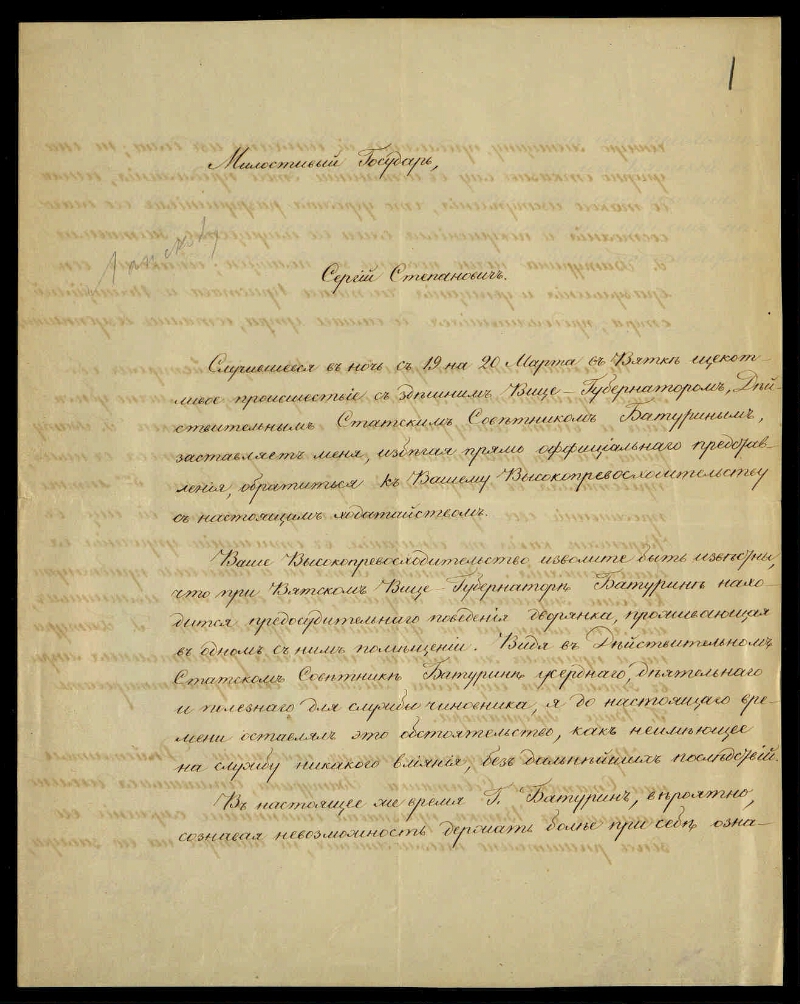 1
Милостивый Государь,
Сергій Степановичъ.
Случившееся въ ночь съ 19 на 20 Марта въ Вяткѣ щекот-
ливое происшествіе съ здѣшнимъ Вице-Губернаторомъ, Дѣй-
ствительнымъ Статскимъ Совѣтникомъ Батуринымъ,
заставляетъ меня, избѣгая прямо оффиціальнаго представ-
ленія, обратиться къ Вашему Высокопревосходительству
съ настоящимъ ходатайствомъ.
Ваше Высокопревосходительство изволите быть извѣстны,
что при Вятскомъ Вице-Губернаторѣ Батуринѣ нахо-
дится предосудительнаго поведенія дворянка, проживающая
въ одномъ съ нимъ помѣщеніи. Видя въ Дѣйствительномъ
Статскомъ Совѣтникѣ Батуринѣ усерднаго, дѣятельнаго
и полезнаго для службы чиновника, я до настоящаго вре-
мени оставлялъ это обстоятельство, какъ неимѣющее
на службу никакого вліянія, безъ дальнѣйшихъ послѣдствій.
Въ настоящее же время Г. Батуринъ, вѣроятно,
сознавая невозможность держать болѣе при себѣ озна-